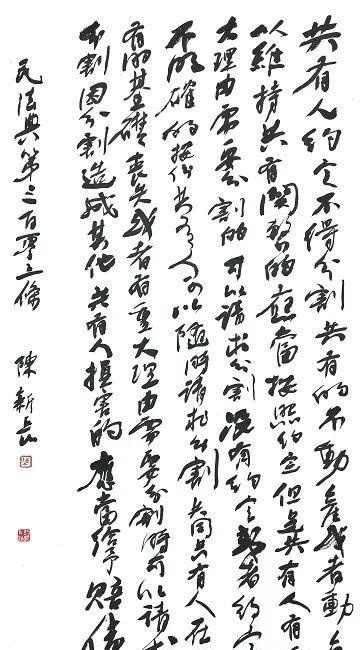 共有人约定不得分割共有的不動產或者動
以維持共有関系的應當按照约定但是共有人有
大理由需要分割的可以请求分割没有约定或者约定
不明確的按份共有人可以随时请求分割共同共有人在
有的基礎喪失或者有重大理由需要分割时可以请求
分割因分割造成其他共有人損害的應當给予赔偿
民法典第三百零三條 陳新長